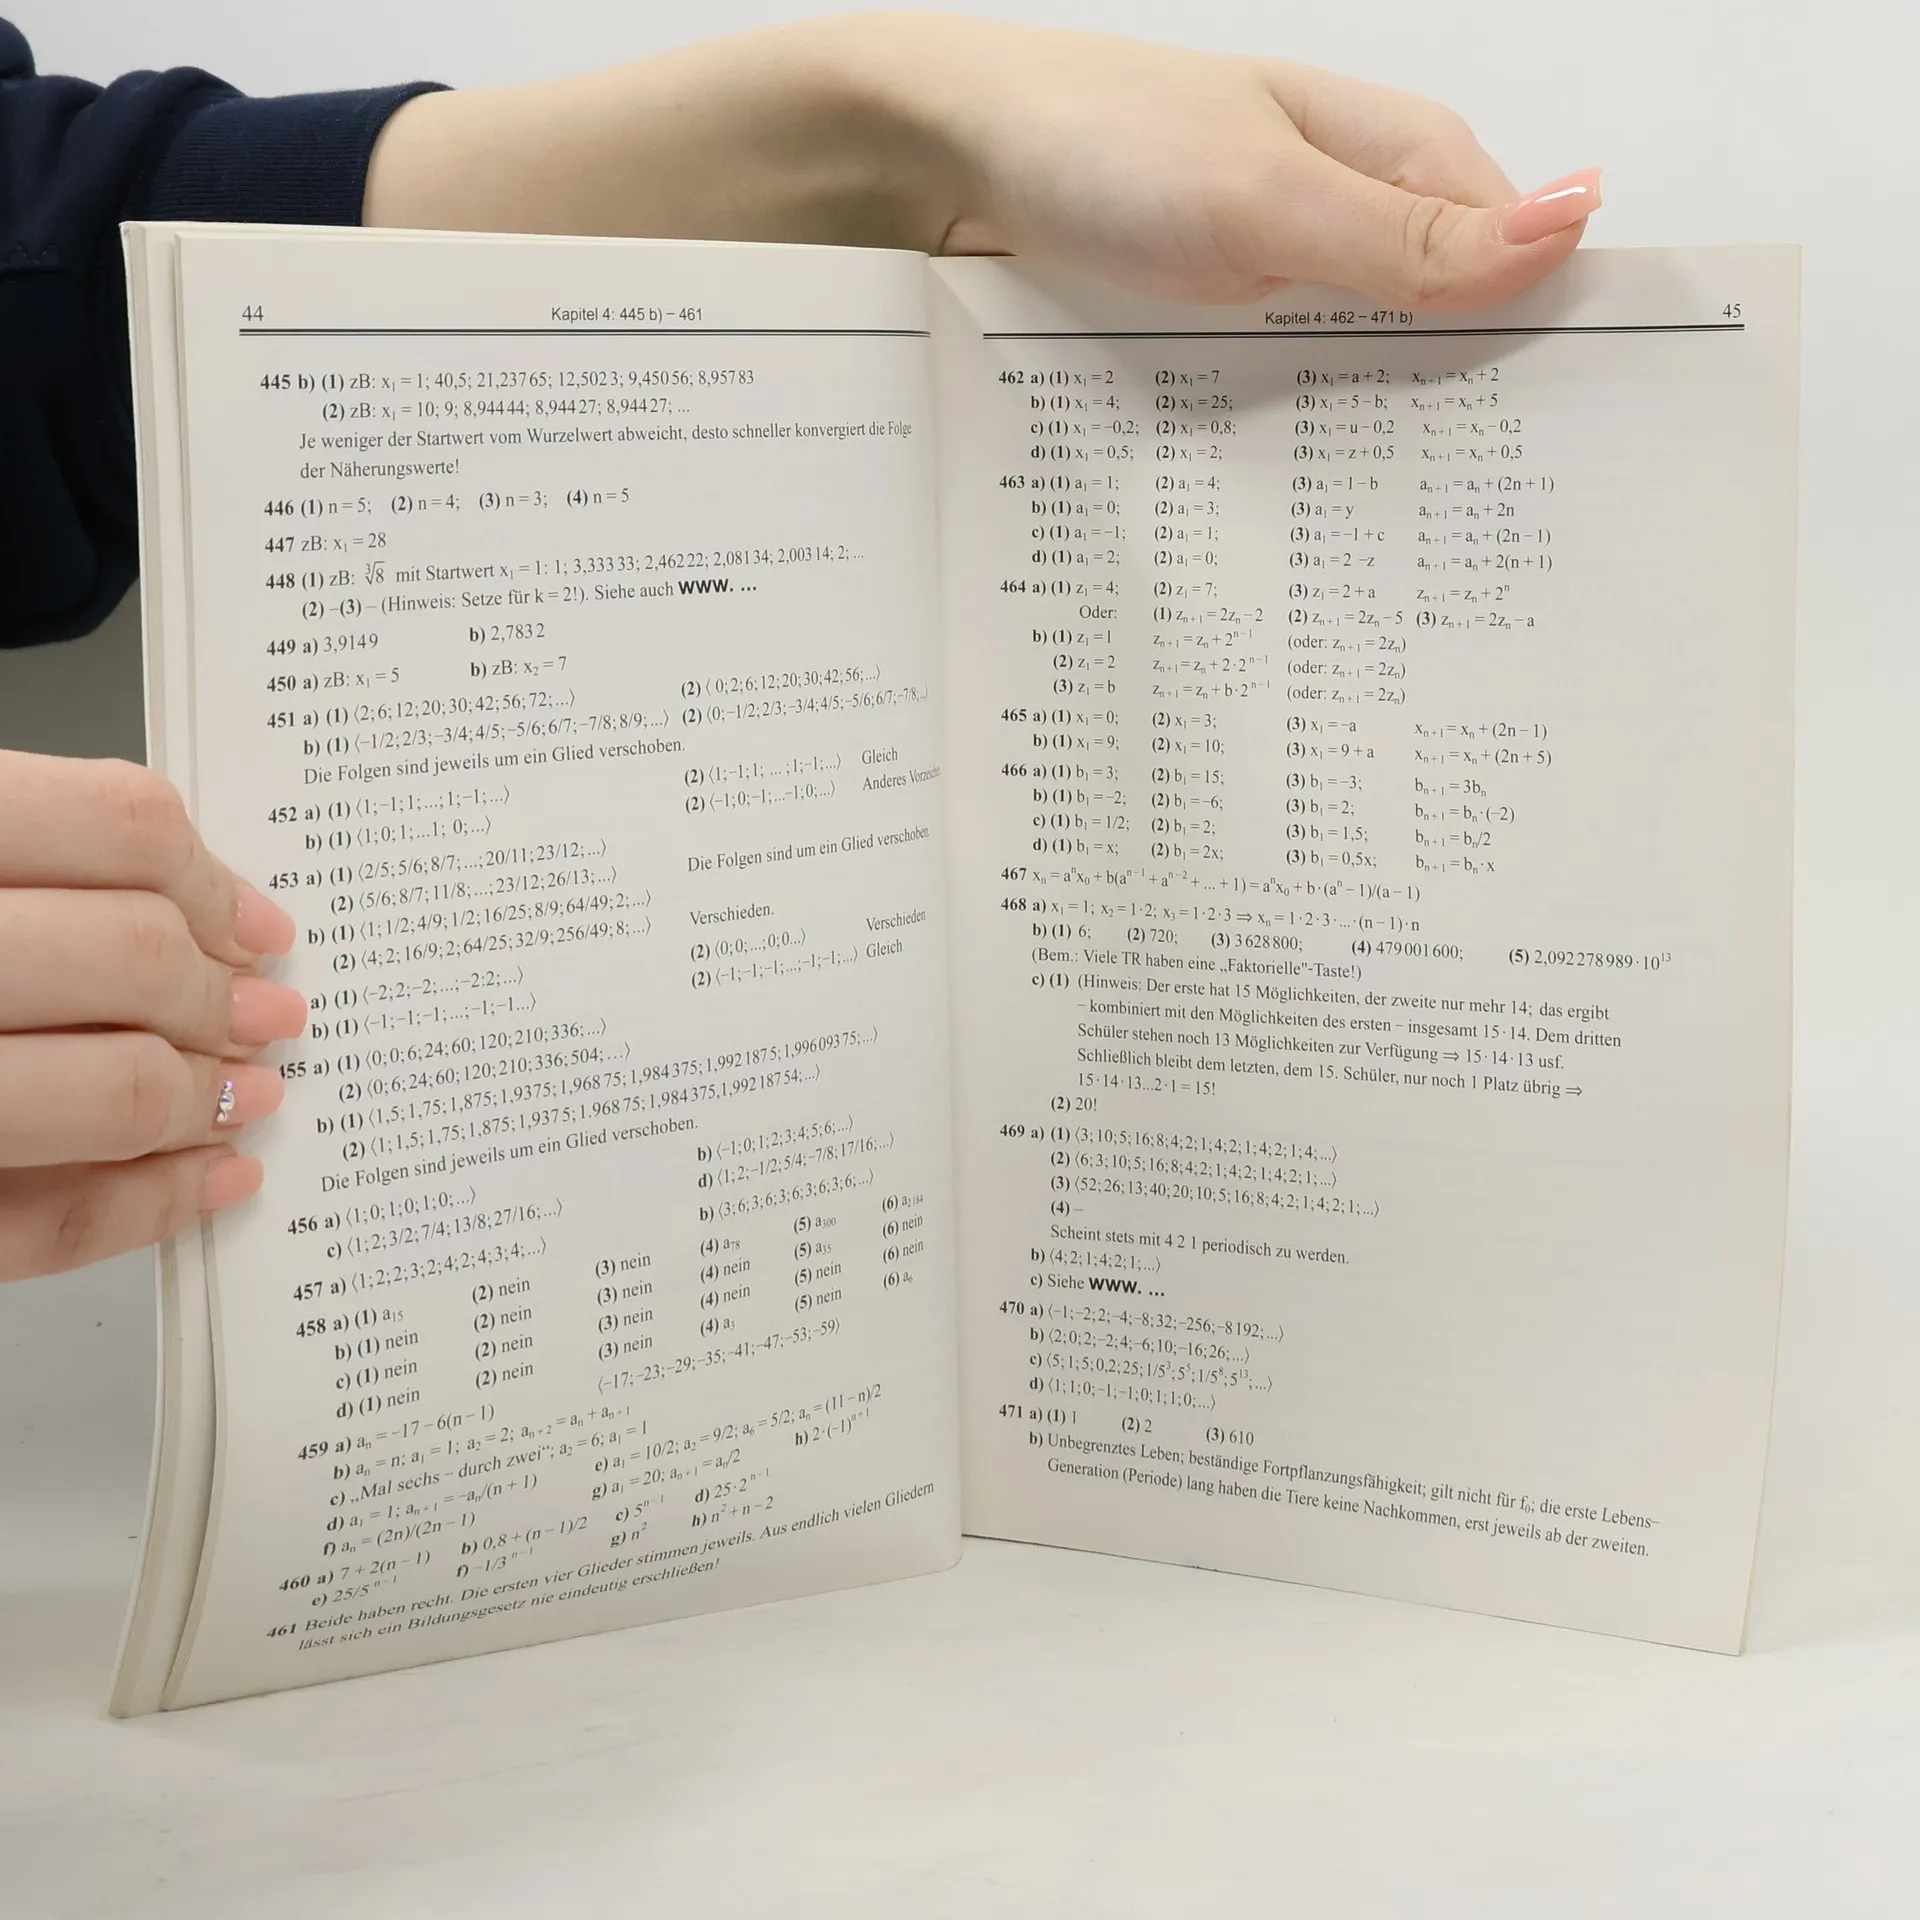 44
Kapitel 4: 445 b) – 461
445 b) (1) zB: x₁ = 1; 40,5; 21,23765; 12,5023; 9,45056; 8,95783
(2) zB: x₁ = 10; 9; 8,94444; 8,94427; 8,94427; ...
Je weniger der Startwert vom Wurzelwert abweicht, desto schneller konvergiert die Folge
der Näherungswerte!
446 (1) n = 5; (2) n = 4; (3) n = 3; (4) n = 5
447 zB: x₁ = 28
448 (1) zB: ∛8 mit Startwert x₁ = 1: 1; 3,33333; 2,46222; 2,08134; 2,00314; 2; ...
(2) –(3) – (Hinweis: Setze für k = 2!). Siehe auch www. ...
449 a) 3,9149 b) 2,7832
450 a) zB: x₁ = 5 b) zB: x₂ = 7
451 a) (1) ⟨2;6;12;20;30;42;56;72;...⟩ (2) ⟨0;2;6;12;20;30;42;56;...⟩
b) (1) ⟨–1/2;2/3;–3/4;4/5;–5/6;6/7;–7/8;8/9;...⟩ (2) ⟨0;–1/2;2/3;–3/4;4/5;–5/6;6/7;–7/8;...⟩
Die Folgen sind jeweils um ein Glied verschoben.
452 a) (1) ⟨1;–1;1;...;1;–1;...⟩ (2) ⟨1;–1;1; ... ;1;–1;...⟩ Gleich
b) (1) ⟨1;0;1;...1; 0;...⟩ (2) ⟨–1;0;–1;...–1;0;...⟩ Anderes Vorzeichen
453 a) (1) ⟨2/5;5/6;8/7;...;20/11;23/12;...⟩
(2) ⟨5/6;8/7;11/8;...;23/12;26/13;...⟩ Die Folgen sind um ein Glied verschoben
b) (1) ⟨1;1/2;4/9;1/2;16/25;8/9;64/49;2;...⟩
(2) ⟨4;2;16/9;2;64/25;32/9;256/49;8;...⟩ Verschieden.
a) (1) ⟨–2;2;–2;...;–2:2;...⟩ (2) ⟨0;0;...;0;0...⟩ Verschieden
b) (1) ⟨–1;–1;–1;...;–1;–1...⟩ (2) ⟨–1;–1;–1;...;–1;–1;...⟩ Gleich
455 a) (1) ⟨0;0;6;24;60;120;210;336;...⟩
(2) ⟨0;6;24;60;120;210;336;504;...⟩
b) (1) ⟨1,5;1,75;1,875;1,9375;1,96875;1,984375;1,9921875;1,99609375;...⟩
(2) ⟨1;1,5;1,75;1,875;1,9375;1.96875;1,984375,1,99218754;...⟩
Die Folgen sind jeweils um ein Glied verschoben.
456 a) ⟨1;0;1;0;1;0;...⟩ b) ⟨–1;0;1;2;3;4;5;6;...⟩
c) ⟨1;2;3/2;7/4;13/8;27/16;...⟩ d) ⟨1;2;–1/2;5/4;–7/8;17/16;...⟩
457 a) ⟨1;2;2;3;2;4;2;4;3;4;...⟩ b) ⟨3;6;3;6;3;6;3;6;3;6;...⟩
458 a) (1) a₁₅ (2) nein (3) nein (4) a₇₈ (5) a₃₀₀ (6) a₂₁₈₄
b) (1) nein (2) nein (3) nein (4) nein (5) a₃₅ (6) nein
c) (1) nein (2) nein (3) nein (4) nein (5) nein (6) nein
d) (1) nein (2) nein (3) nein (4) a₃ (5) nein (6) a₆
459 a) aₙ = –17 – 6(n – 1) ⟨–17;–23;–29;–35;–41;–47;–53;–59⟩
b) aₙ = n; a₁ = 1; a₂ = 2; aₙ₊₂ = aₙ + aₙ₊₁
c) „Mal sechs – durch zwei“; a₂ = 6; a₁ = 1
d) a₁ = 1; aₙ₊₁ = –aₙ/(n + 1) e) a₁ = 10/2; a₂ = 9/2; a₆ = 5/2; aₙ = (11 – n)/2
f) aₙ = (2n)/(2n – 1) g) a₁ = 20; aₙ₊₁ = aₙ/2 h) 2·(–1)ⁿ⁺¹
460 a) 7 + 2(n – 1) b) 0,8 + (n – 1)/2 c) 5ⁿ⁻¹ d) 25·2ⁿ⁻¹
e) 25/5ⁿ⁻¹ f) –1/3ⁿ⁻¹ g) n² h) n² + n – 2
461 Beide haben recht. Die ersten vier Glieder stimmen jeweils. Aus endlich vielen Gliedern
lässt sich ein Bildungsgesetz nie eindeutig erschließen!
Kapitel 4: 462 – 471 b)
45
462 a) (1) x₁ = 2 (2) x₁ = 7 (3) x₁ = a + 2; xₙ₊₁ = xₙ + 2
b) (1) x₁ = 4; (2) x₁ = 25; (3) x₁ = 5 – b; xₙ₊₁ = xₙ + 5
c) (1) x₁ = –0,2; (2) x₁ = 0,8; (3) x₁ = u – 0,2 xₙ₊₁ = xₙ – 0,2
d) (1) x₁ = 0,5; (2) x₁ = 2; (3) x₁ = z + 0,5 xₙ₊₁ = xₙ + 0,5
463 a) (1) a₁ = 1; (2) a₁ = 4; (3) a₁ = 1 – b aₙ₊₁ = aₙ + (2n + 1)
b) (1) a₁ = 0; (2) a₁ = 3; (3) a₁ = y aₙ₊₁ = aₙ + 2n
c) (1) a₁ = –1; (2) a₁ = 1; (3) a₁ = –1 + c aₙ₊₁ = aₙ + (2n – 1)
d) (1) a₁ = 2; (2) a₁ = 0; (3) a₁ = 2 –z aₙ₊₁ = aₙ + 2(n + 1)
464 a) (1) z₁ = 4; (2) z₁ = 7; (3) z₁ = 2 + a zₙ₊₁ = zₙ + 2ⁿ
Oder: (1) zₙ₊₁ = 2zₙ – 2 (2) zₙ₊₁ = 2zₙ – 5 (3) zₙ₊₁ = 2zₙ – a
b) (1) z₁ = 1 zₙ₊₁ = zₙ + 2ⁿ⁻¹ (oder: zₙ₊₁ = 2zₙ)
(2) z₁ = 2 zₙ₊₁ = zₙ + 2·2ⁿ⁻¹ (oder: zₙ₊₁ = 2zₙ)
(3) z₁ = b zₙ₊₁ = zₙ + b·2ⁿ⁻¹ (oder: zₙ₊₁ = 2zₙ)
465 a) (1) x₁ = 0; (2) x₁ = 3; (3) x₁ = –a xₙ₊₁ = xₙ + (2n – 1)
b) (1) x₁ = 9; (2) x₁ = 10; (3) x₁ = 9 + a xₙ₊₁ = xₙ + (2n + 5)
466 a) (1) b₁ = 3; (2) b₁ = 15; (3) b₁ = –3; bₙ₊₁ = 3bₙ
b) (1) b₁ = –2; (2) b₁ = –6; (3) b₁ = 2; bₙ₊₁ = bₙ·(–2)
c) (1) b₁ = 1/2; (2) b₁ = 2; (3) b₁ = 1,5; bₙ₊₁ = bₙ/2
d) (1) b₁ = x; (2) b₁ = 2x; (3) b₁ = 0,5x; bₙ₊₁ = bₙ·x
467 xₙ = aⁿx₀ + b(aⁿ⁻¹ + aⁿ⁻² + ... + 1) = aⁿx₀ + b·(aⁿ – 1)/(a – 1)
468 a) x₁ = 1; x₂ = 1·2; x₃ = 1·2·3 ⇒ xₙ = 1·2·3·...·(n – 1)·n
b) (1) 6; (2) 720; (3) 3628800; (4) 479001600; (5) 2,092278989·10¹³
(Bem.: Viele TR haben eine „Faktorielle"-Taste!)
c) (1) (Hinweis: Der erste hat 15 Möglichkeiten, der zweite nur mehr 14; das ergibt
– kombiniert mit den Möglichkeiten des ersten – insgesamt 15·14. Dem dritten
Schüler stehen noch 13 Möglichkeiten zur Verfügung ⇒ 15·14·13 usf.
Schließlich bleibt dem letzten, dem 15. Schüler, nur noch 1 Platz übrig ⇒
15·14·13...2·1 = 15!
(2) 20!
469 a) (1) ⟨3;10;5;16;8;4;2;1;4;2;1;4;2;1;4;...⟩
(2) ⟨6;3;10;5;16;8;4;2;1;4;2;1;4;2;1;...⟩
(3) ⟨52;26;13;40;20;10;5;16;8;4;2;1;4;2;1;...⟩
(4) –
Scheint stets mit 4 2 1 periodisch zu werden.
b) ⟨4;2;1;4;2;1;...⟩
c) Siehe www. ...
470 a) ⟨–1;–2;2;–4;–8;32;–256;–8192;...⟩
b) ⟨2;0;2;–2;4;–6;10;–16;26;...⟩
c) ⟨5;1;5;0,2;25;1/5³;5⁵;1/5⁸;5¹³;...⟩
d) ⟨1;1;0;–1;–1;0;1;1;0;...⟩
471 a) (1) 1 (2) 2 (3) 610
b) Unbegrenztes Leben; beständige Fortpflanzungsfähigkeit; gilt nicht für f₀; die erste Lebens–
Generation (Periode) lang haben die Tiere keine Nachkommen, erst jeweils ab der zweiten.